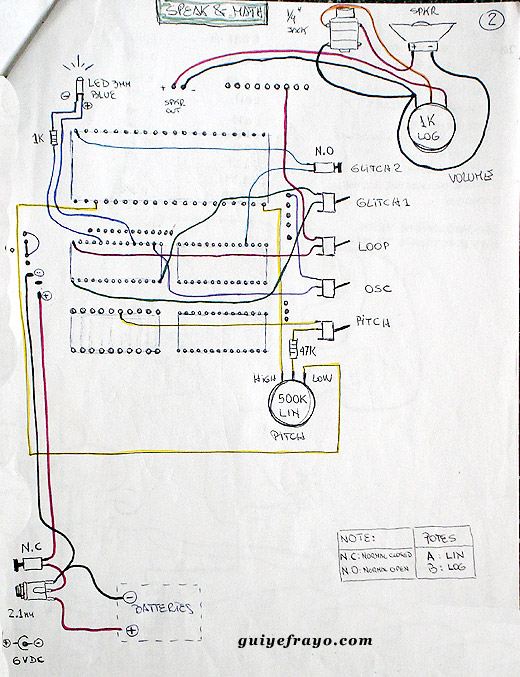 SPEAK & MATH
1/4"
JACK
SPKR
2
LED 3MM
BLUE
SPKR
OUT
1K
1K
LOG
VOLUME
N.O
GLITCH 2
GLITCH 1
LOOP
OSC
PITCH
47K
HIGH
LOW
500K
LIN
PITCH
N.C
2.1MM
6VDC
BATTERIES
NOTE:
N.C: NORMAL CLOSED
N.O: NORMAL OPEN
POTES
A: LIN
B: LOG
guiyefrayo.com